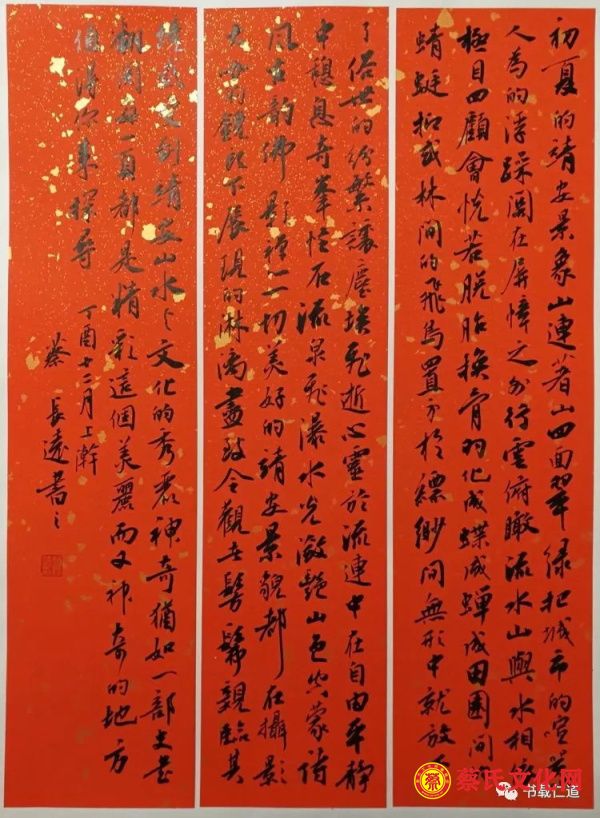 初夏的靖安景象山連着山四面翠綠把城市的喧囂
人為的浮躁閣在屏幛之外行雲俯瞰流水山與水相
極目四顧會恍若脫胎換骨羽化成蝶成蟬成田園間
蜻蜓抑或林間的飛鳥置身於縹緲間無形中就放
了俗世的紛繁讓塵埃飛逝心靈於流連中在自由平靜
中憩息奇峯怪石流泉飛瀑水光瀲灧山色空蒙清
風古韻佛影禪一切美好的靖安景貌都在攝影
大師鏡頭下展現的淋漓盡致令觀者髣髴親臨其
境或文創靖安山水之文化的秀麗神奇猶如一部史書
翻開每一頁都是精彩這個美麗而又神奇的地方
值得你來探尋
丁酉十二月上澣
蔡長遠書之
蔡氏文化网
书载仁道